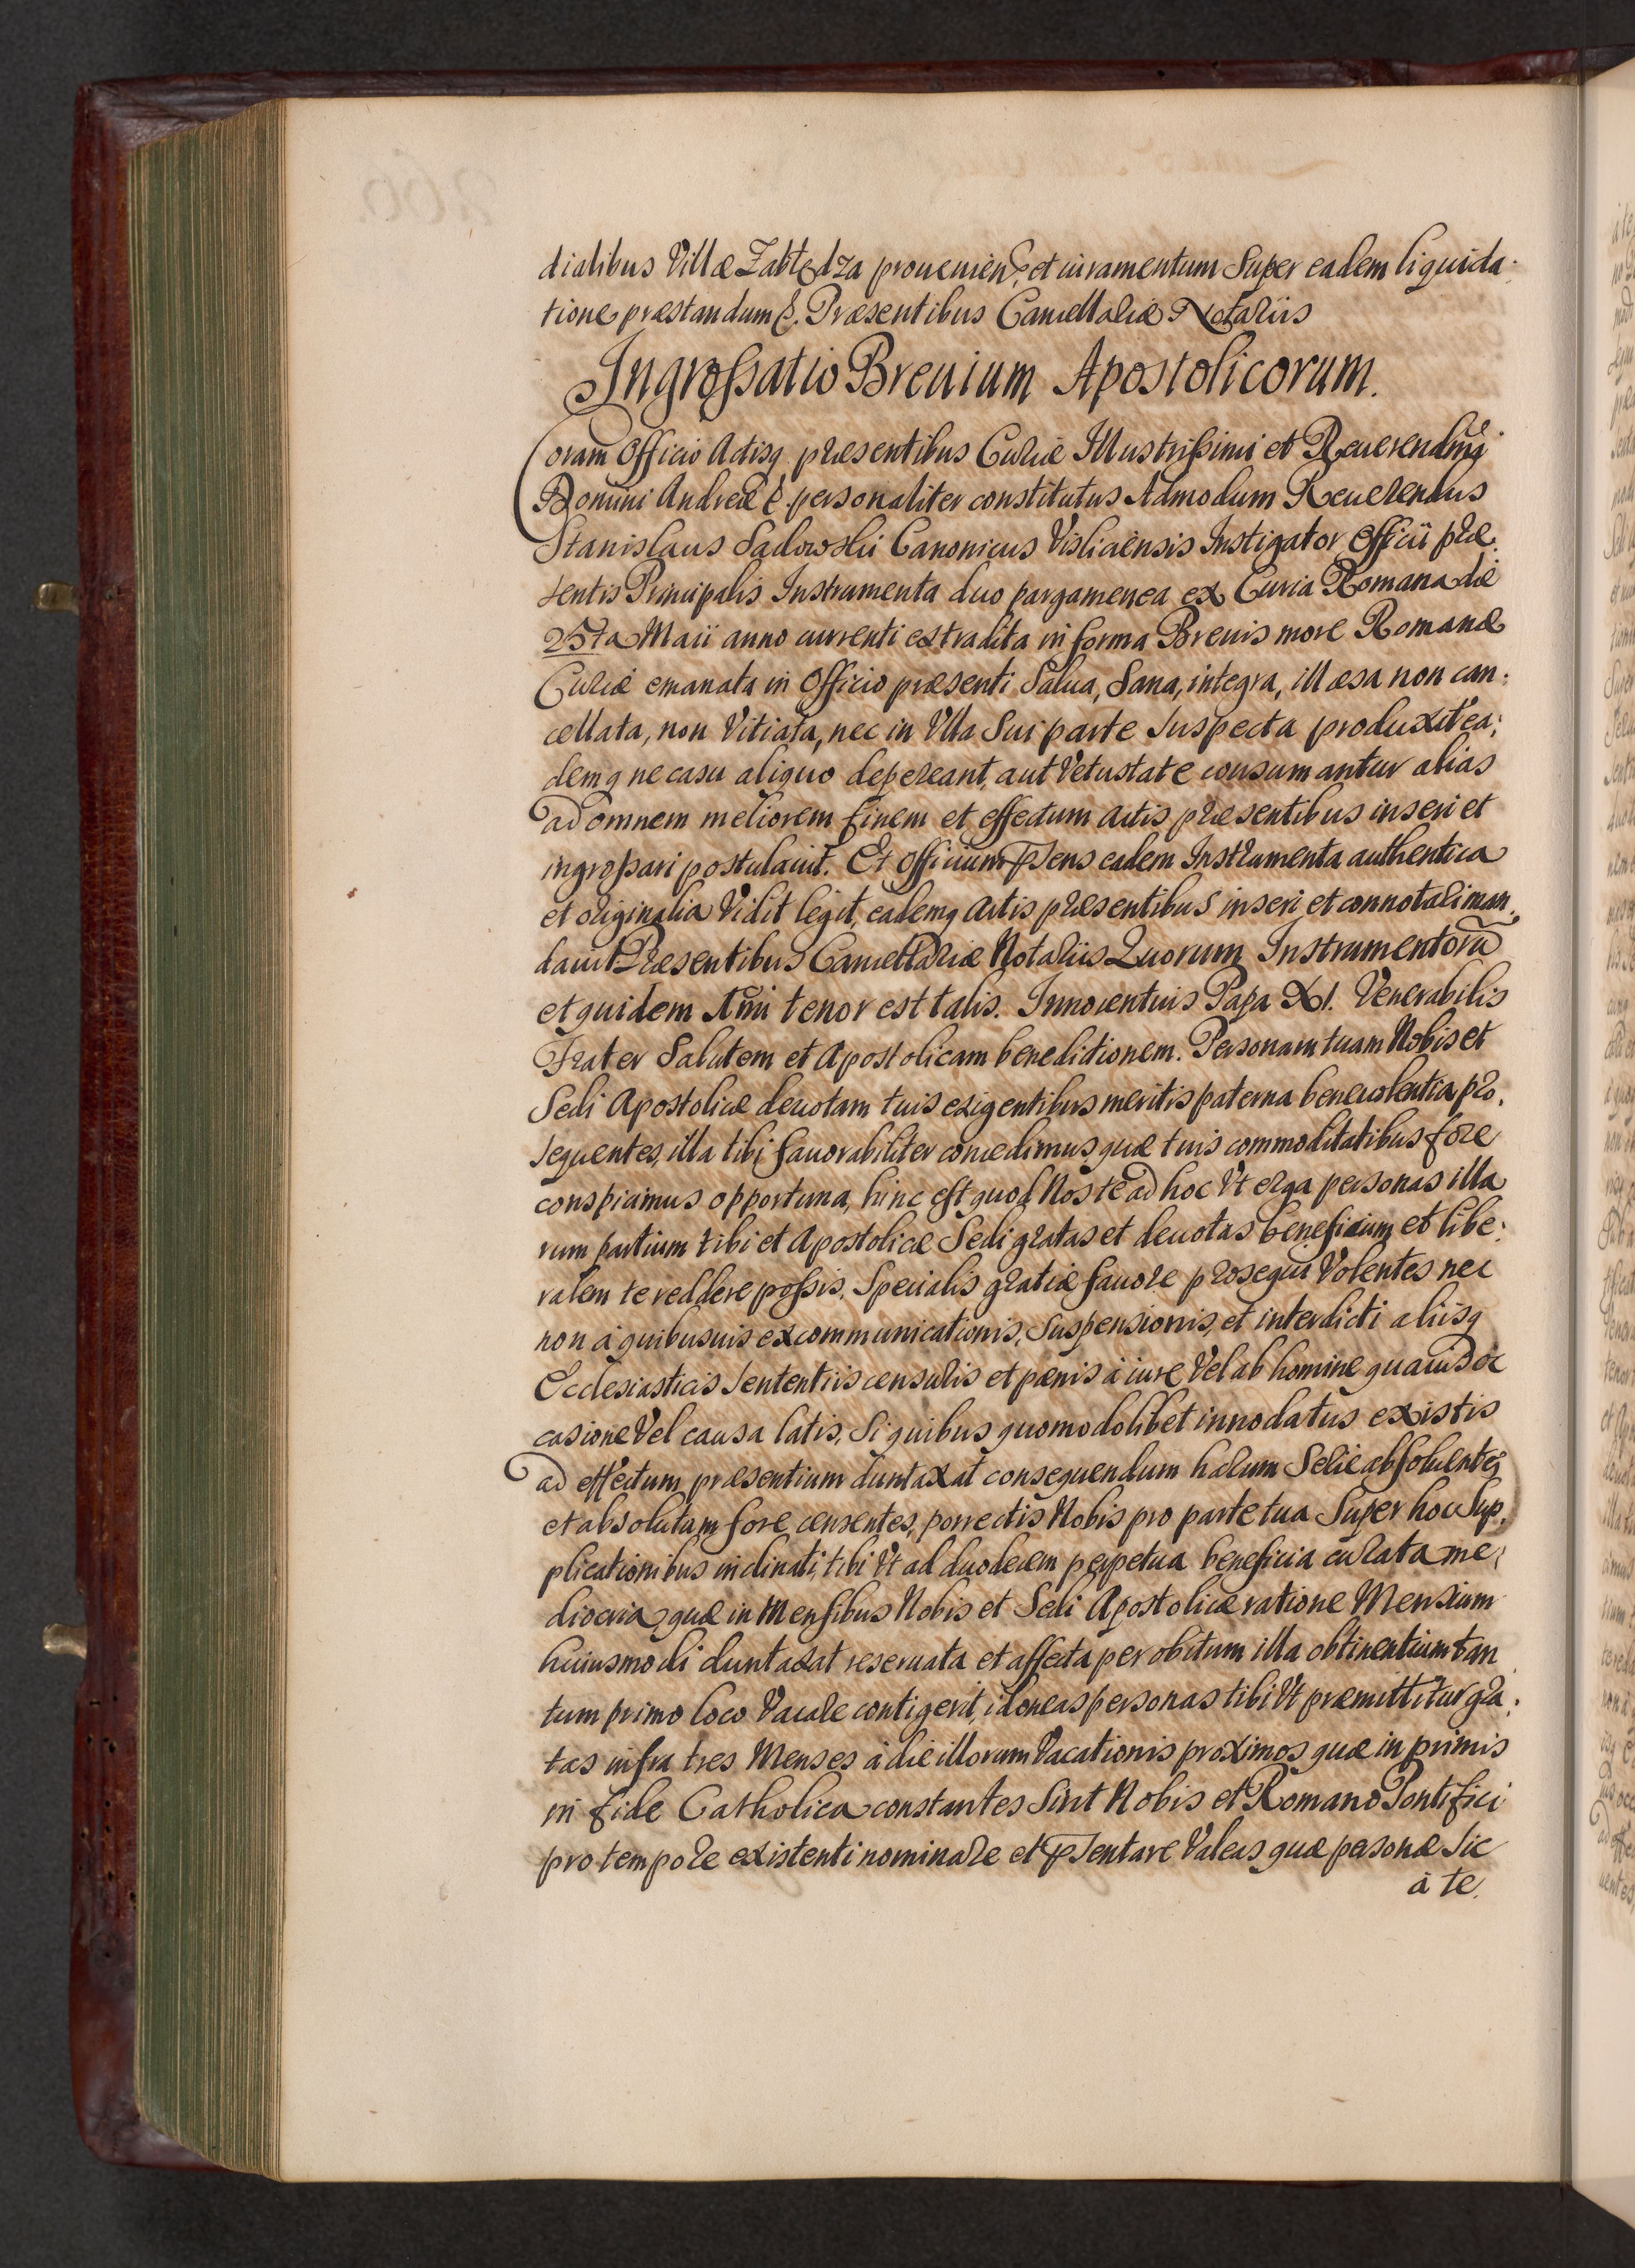 dialibus Villæ Zabłędza prouenien: et iuramentum Super eadem liquida
tione præstandum &. Præsentibus Cancellariæ Notariis
Ingroßatio Breuium Apostolicorum.
Coram Officio Actisq. præsentibus Curiæ Illustrißimi et Reuerendmi
Domini Andreæ &. personaliter constitutus Admodum Reuerendus
Stanislaus Sadowski Canonicus Visliciensis Instigator Officii præ
sentis Principalis Instrumenta duo pargamenea ex Curia Romana die
25ta Maii anno currenti extradita in forma Breuis more Romanæ
Curiæ emanata in Officio præsenti Salua, Sana, integra, illæsa non can:
cellata, non Vitiata, nec in Vlla Sui parte Suspecta produxit ea:
demq ne casu aliquo depereant, aut Vetustate consumantur alias
ad omnem meliorem finem et effectum Actis præsentibus inseri et
ingroßari postulauit. Et Officium Psens eadem Instrumenta authentica
et originalia Vidit legit, eademq Actis præsentibus inseri et connotari man
dauit Præsentibus Cancellariæ Notariis Quorum Instrumentorũ
et quidem Imi tenor est talis. Innocentius Papa XI. Venerabilis
Frater Salutem et Apostolicam benedictionem. Personam tuam Nobis et
Sedi Apostolicæ deuotam tuis exigentibus meritis paterna beneuolentia pro,
sequentes, illa tibi fauorabiliter concedimus, quæ tuis commoditatibus fore
conspicimus opportuna, hinc est quod Nos te ad hoc Vt erga personas illa
rum partium tibi et Apostolicæ Sedi gratas et deuotas beneficum et libe:
ralem te reddere poßis, Specialis gratiæ fauore prosequi Volentes nec
non à quibusuis excommunicationis, Suspensionis, et interdicti aliisq
Ecclesiasticis Sententiis censuris et pænis à iure Vel ab homine quauis oc
casione Vel causa latis, Si quibus quomodolibet innodatus existis
ad effectum præsentium duntaxat consequendum harum Serie absoluentes
et absolutam fore censentes, porrectis Nobis pro parte tua Super hoc Sup,
plicationibus inclinati, tibi Vt ad duodecem perpetua beneficia curata me:
diocria, quæ in Mensibus Nobis et Sedi Apostolicæ ratione Mensium
huiusmodi duntaxat reseruata et affecta per obitum illa obtinentium tan
tum primo loco Vacare contigerit, idoneas personas tibi Vt præmittitur gra,
tas infra tres Menses à die illorum Vacationis proximos quæ in primis
in fide Catholica constantes Sint Nobis et Romano Pontifici
pro tempore existenti nominare et Psentare Valeas quæ personæ Sic
à te.